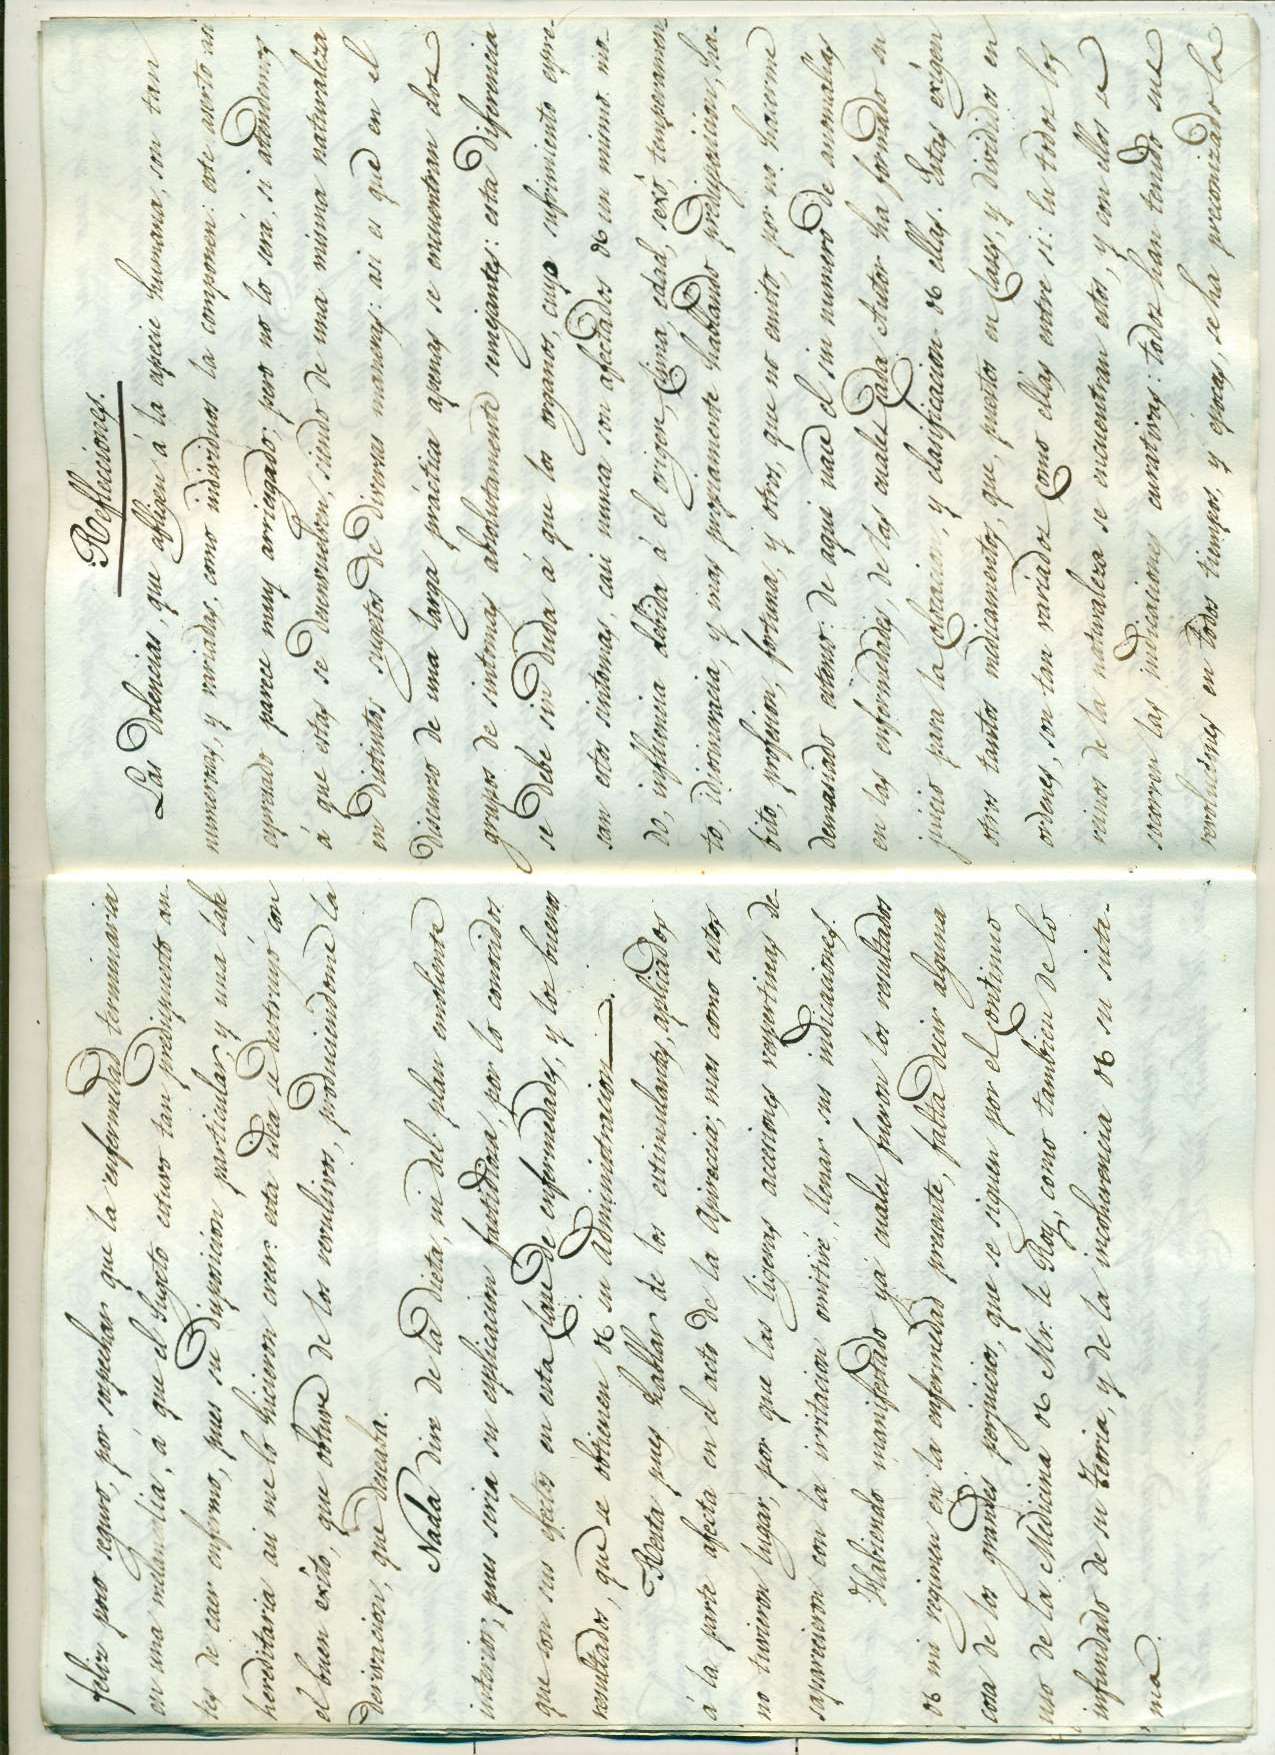 feliz poso seguro, por sospechar que la enfermedad terminaria
en una melancolia, á que el Sugeto estuvo tan predispuesto an-
tes de caer enfermo, pues su disposicion particular, y una tabe
hereditaria asi me lo hicieron creer: esta idea se destruyó con
el buen exîto, que obtuve de los revulsivos, produciendome la
derivacion, que deseaba.
Nada dire de la Dieta, ni del plan emoliente
interior; pues seria su esplicacion fastidiosa, por lo conocidos
que son sus efectos en esta clase de enfermedades, y los buenos
resultados, que se obtienen de su administracion.
Resta pues hablar de los estimulantes, aplicados
á la parte afecta en el acto de la Apirecsia; mas como estos
no tuvieron lugar, por que las ligeras acciones vespertinas de-
saparecieron con la irritacion omitiré, llenar sus indicaciones.
Habiendo manifestado ya cuales fueron los resultados
de mi regimen en la enfermedad presente, falta decir alguna
cosa de los grandes perjuicios, que se siguen por el continuo
uso de la Medicina de Mr. le Roy, como tambien de lo
infundado de su teoria, y de la incoherencia de su siste-
ma.
Reflecciones.
Las Dolencias, que afligen á la especie humana, son tan
numerosas, y variadas, como individuos la componen: este aserto asi
espresado parece muy arriesgado; pero no lo será, si atendemos
á que estas se desenvuelven, siendo de una misma naturaleza
en distintos sugetos de diversas maneras: asi es que en el
discurso de una larga práctica apenas se encuentran dos
grupos de sintomas absolutamente semejantes: esta diferencia
se debe sin duda á que los organos, cuyo sufrimiento espre-
san estos sintomas, casi nunca son afectados de un mismo mo-
do, influencia debida á el origen, clima, edad, sexô, temperamen-
to, idiosincracia, y mas propiamente hablando predisposicion, ha-
bito, profesion, fortuna, y otros, que no emito, por no hacerme
demasiado estenso: de aqui nace el sin numero de anomalias
en las enfermedades, de las cuales cada Autor ha formado su
juicio para la colocacion, y clasificacion de ellas. Estas exigen
otros tantos medicamentos, que, puestos en clases, y divididos en
ordenes, son tan variados como ellas entre si: En todos los
reinos de la naturaleza se encuentran estos, y con ellos se
socorren las indicaciones curativas: todos han tenido sus
revoluciones en todos tiempos, y epocas, se ha preconizado la